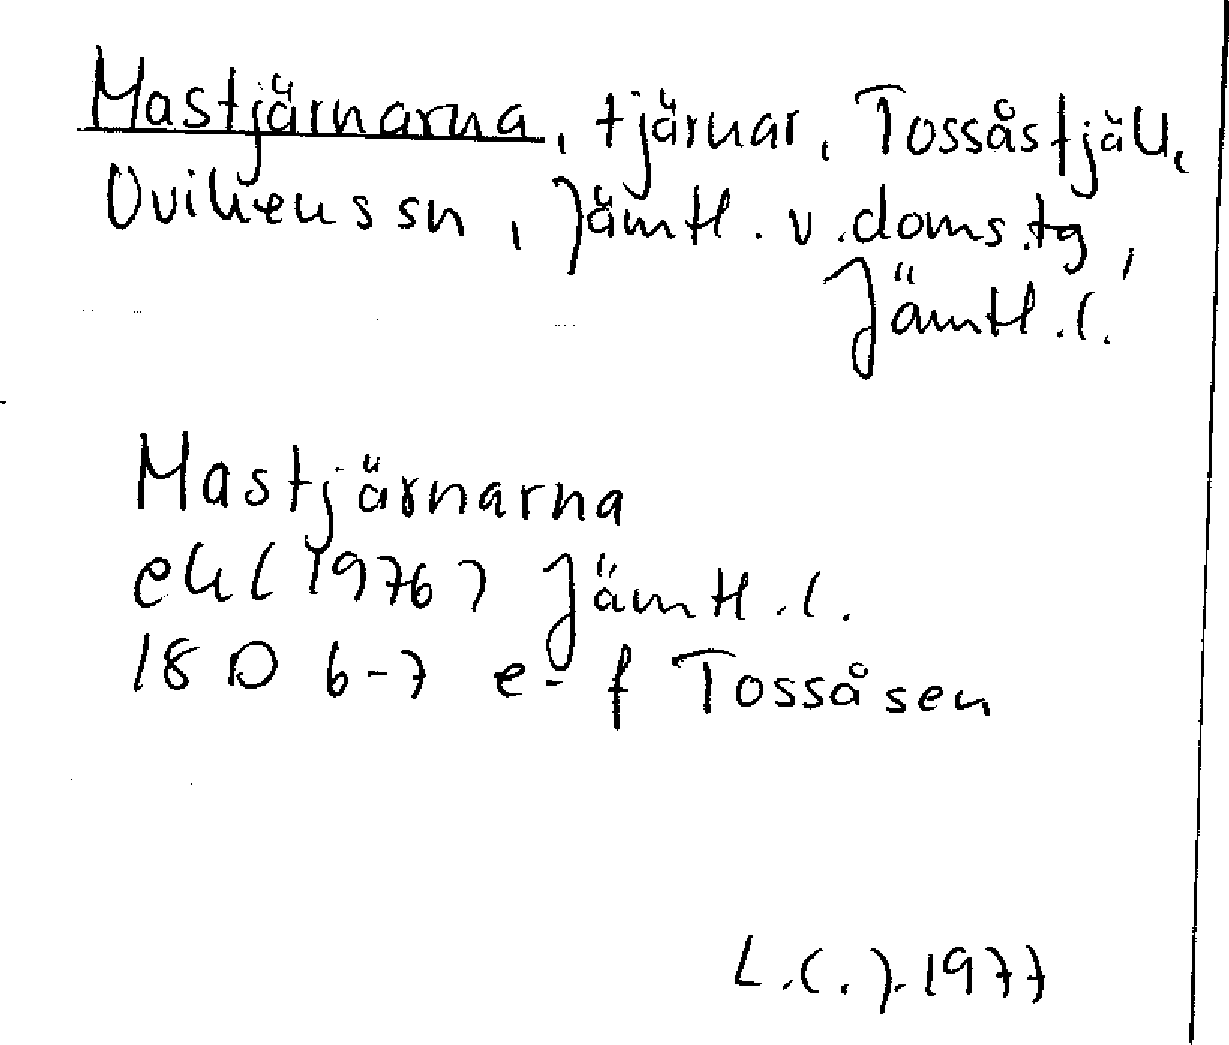 Mastjärnarna, tjärnar, Tossåsfjäll,
Ovikens sn, Jämtl. v. doms. tg,
Jämtl. l.
Mastjärnarna
ek (1976) Jämtl. l.
18 D 6-7 e-f Tossåsen
L.C.J. 1977